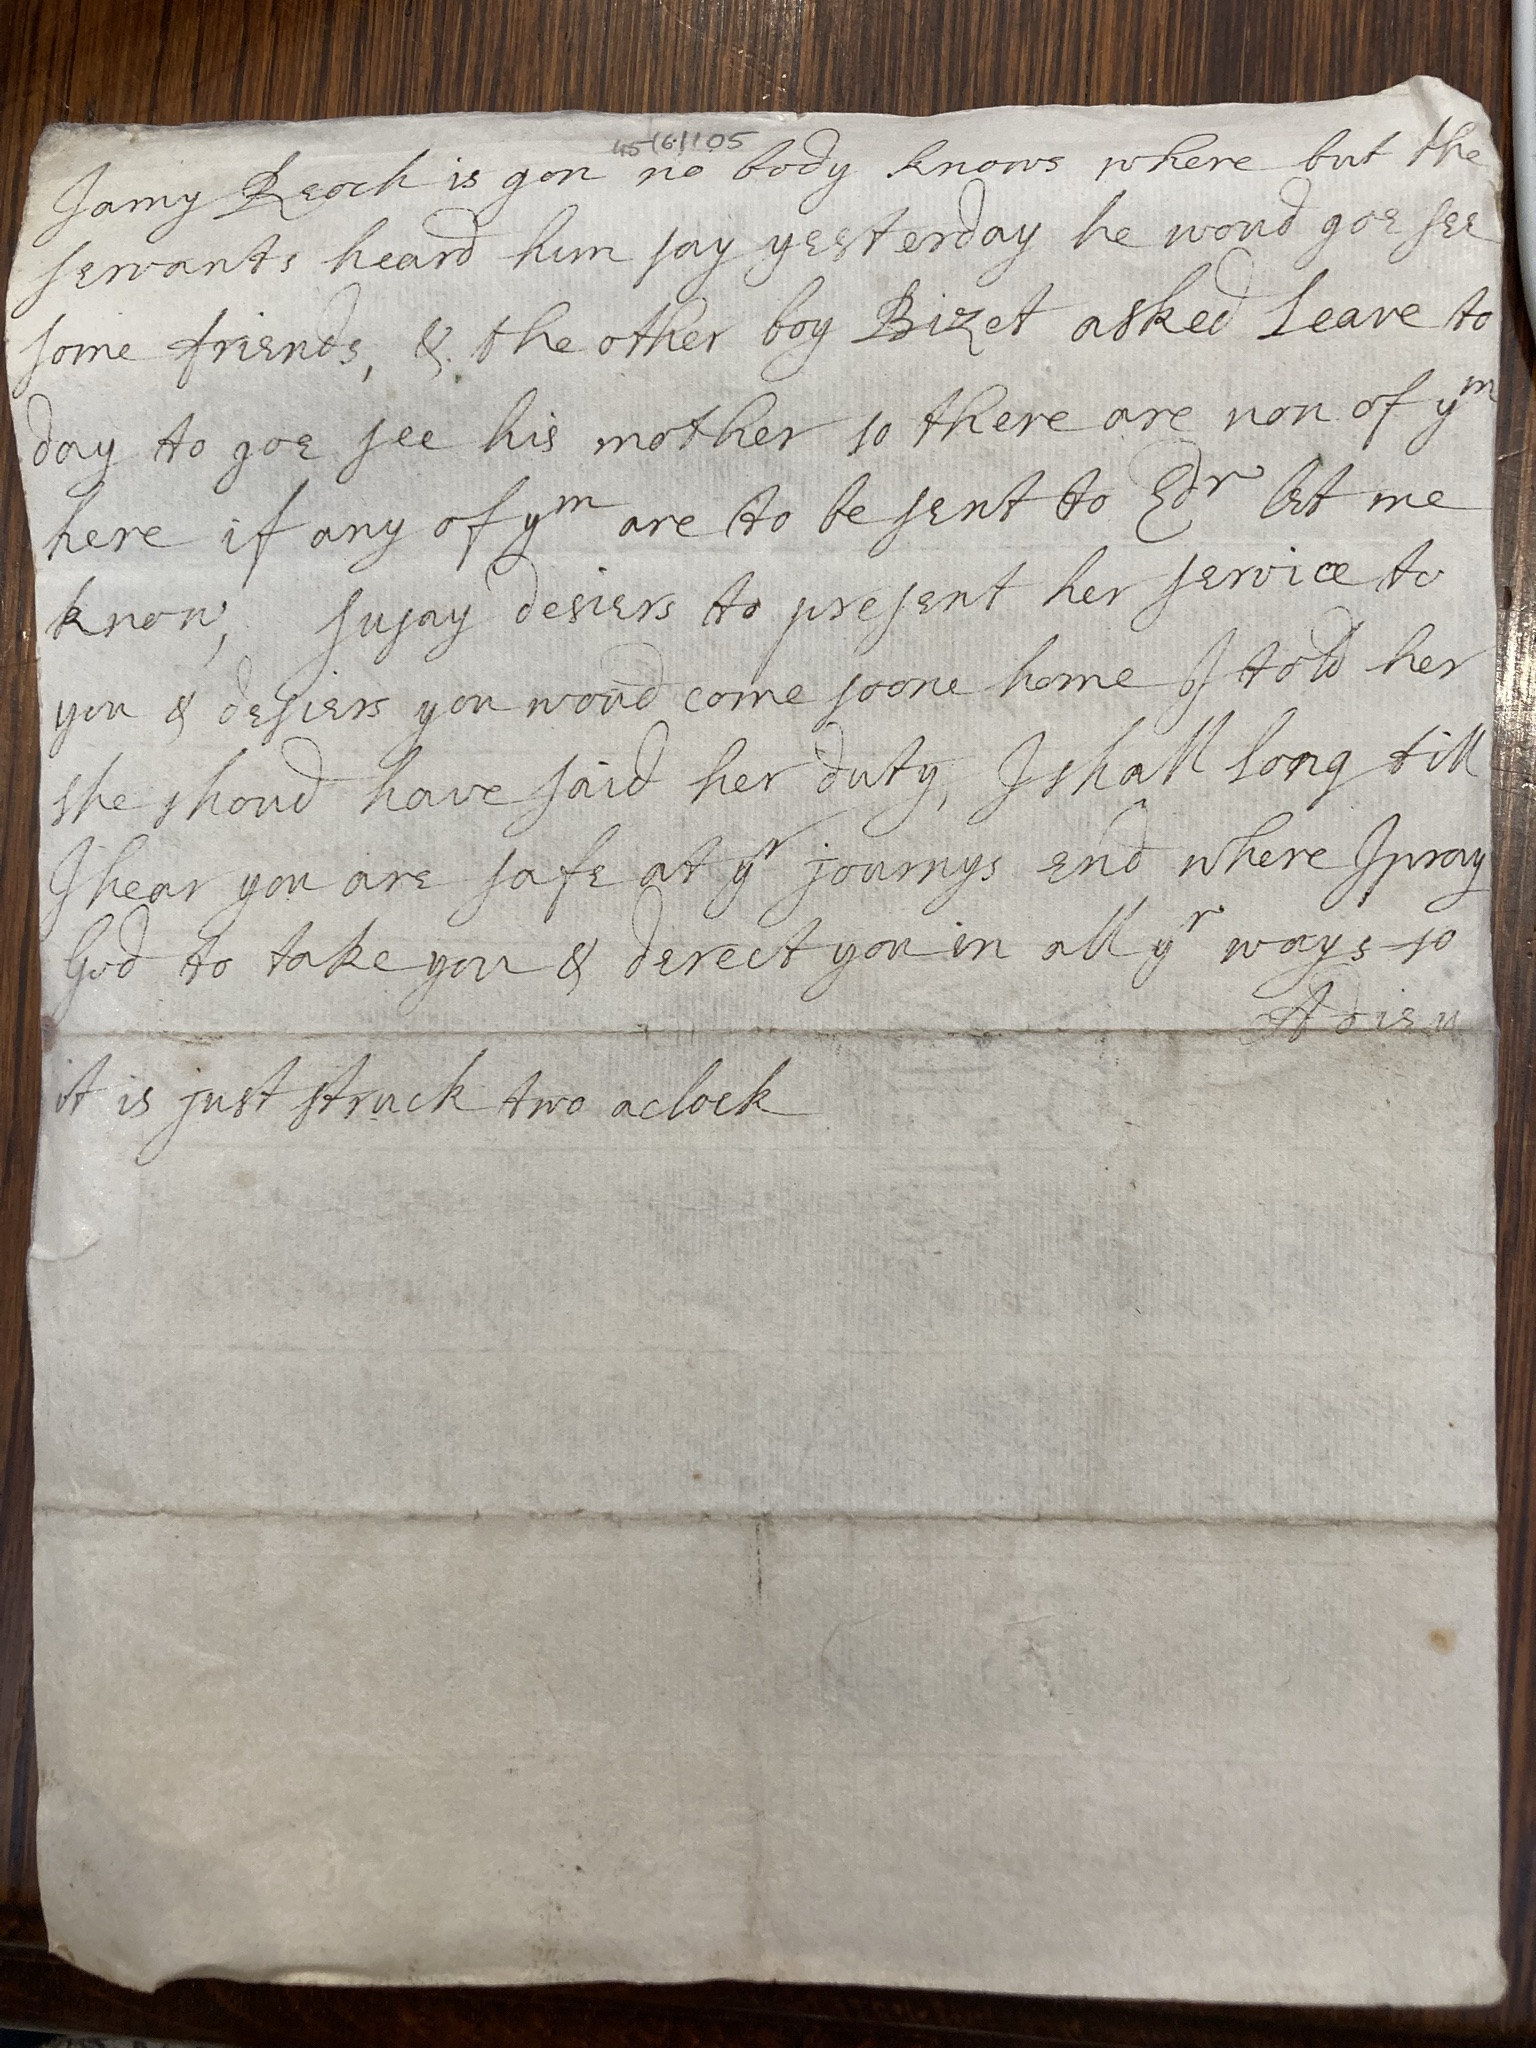 45(6)105
Jamy Reoch is gon no body knows where but the
servants heard him say yesterday he woud goe see
some friends, & the other boy Bizet asked Leave to
day to goe see his mother so there are non of ym
here if any of ym are to be sent to Edr let me
know, susay desiers to present her service to
you & desiers you woud come soone home I told her
she shoud have said her duty, I shall long till
I hear you are safe at yr journys end where I pray
God to take you & derect you in all yr ways so
Adieu
it is just struck two aclock